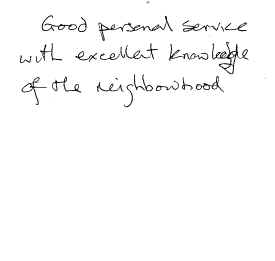 Good personal service
with excellent knowledge
of the neighbourhood